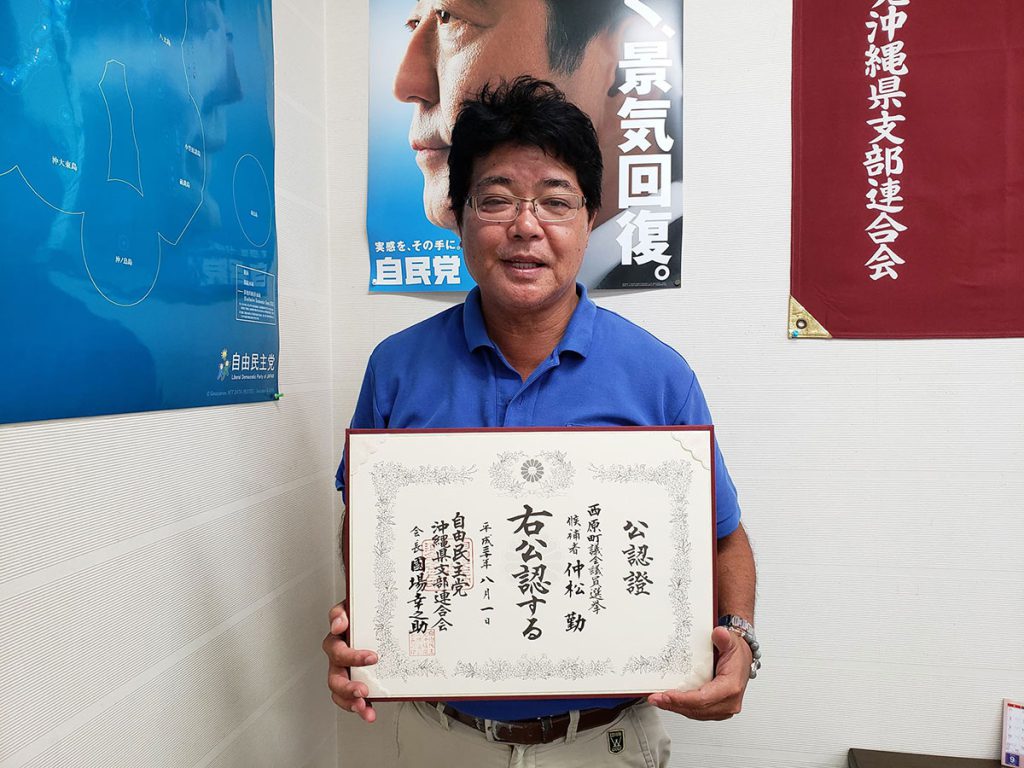 沖大東島
沖ノ鳥島
自由民主党
Liberal Democratic Party of JAPAN
景気回復。
実感を、その手に。
自民党
沖縄県支部連合会
公認證
西原町議会議員選挙
候補者 仲松 勤
右公認する
平成三十年 八月 一日
自由民主党
沖縄県支部連合会
会長 國場幸之助
9